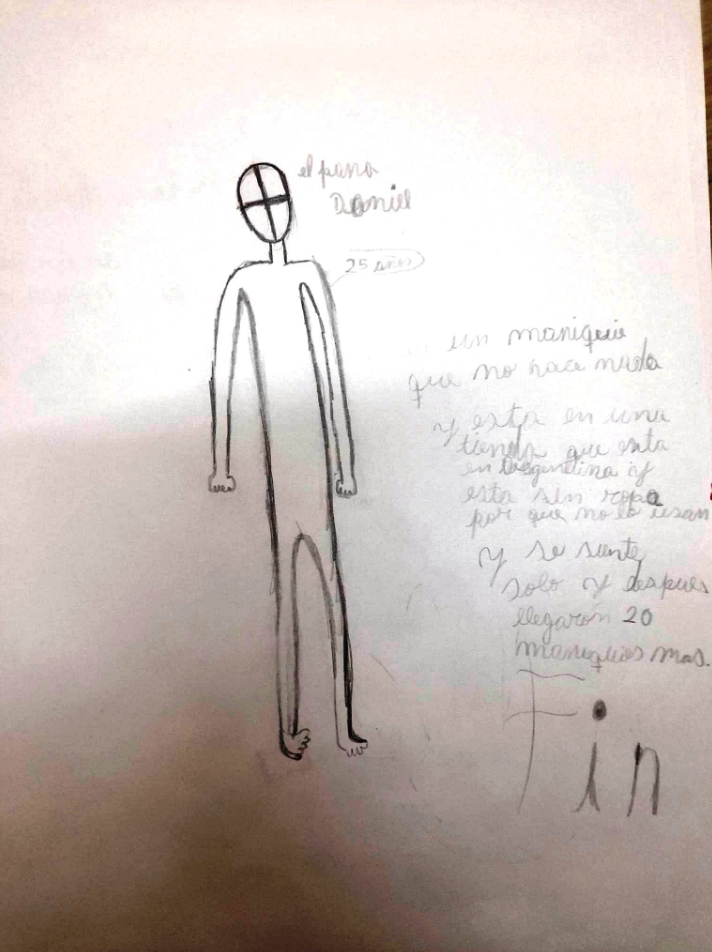 el pana
Daniel
25 años
un maniquie
que no hace nada
y esta en una
tienda que esta
en argentina y
esta sin ropa
por que no lo usan
y se siente
solo y despues
llegarón 20
maniquies mas.
Fin